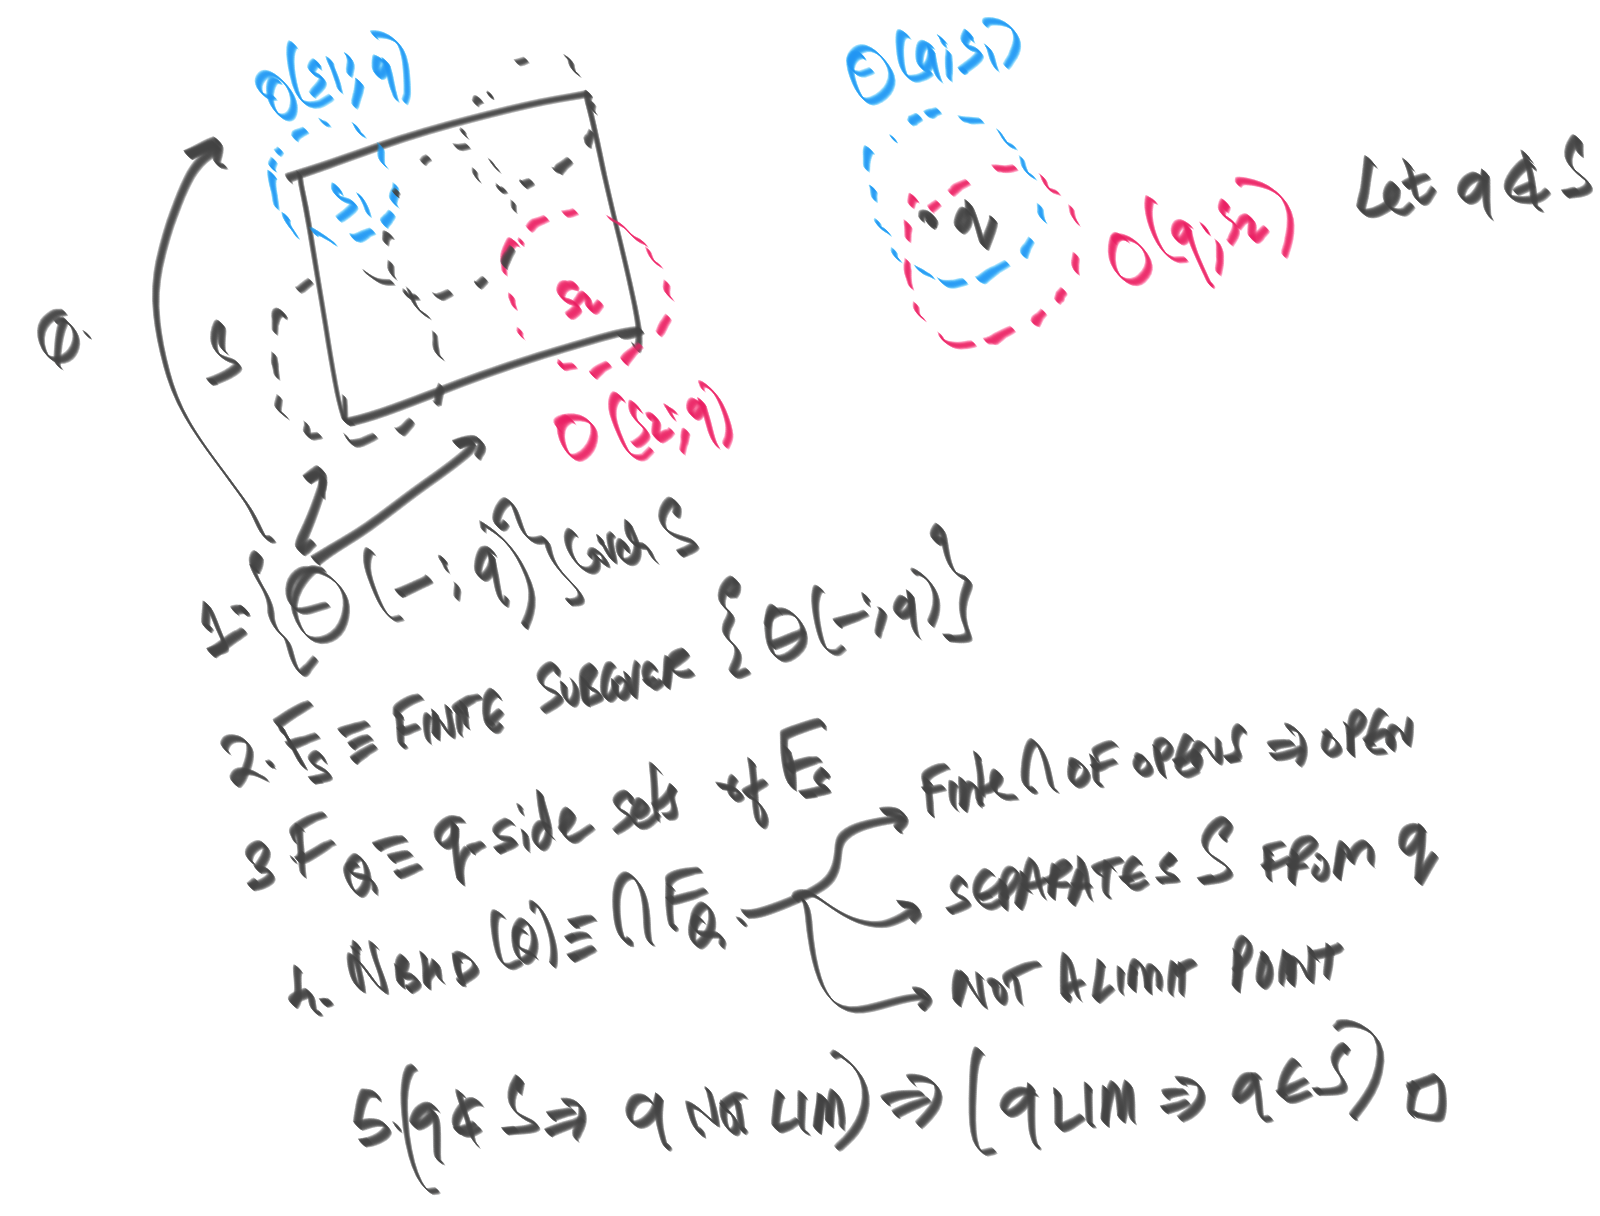 O(s1;q)
Θ(q;s1)
Let q ∉ S
s1
q
O(q;s2)
s2
0.
S
O(s2;q)
1. {Θ(-;q)} Covers S
2. F_S ≡ FINITE SUBCOVER {Θ(-;q)}
3 F_Q ≡ q-side sets of F_S
4. NBHD (Q) ≡ ∩ F_Q
Finite ∩ OF OPENS ⇒ OPEN
SEPARATES S FROM q
NOT A LIMIT POINT
5. (q ∉ S ⇒ q NOT LIM) ⇒ (q LIM ⇒ q ∈ S) □